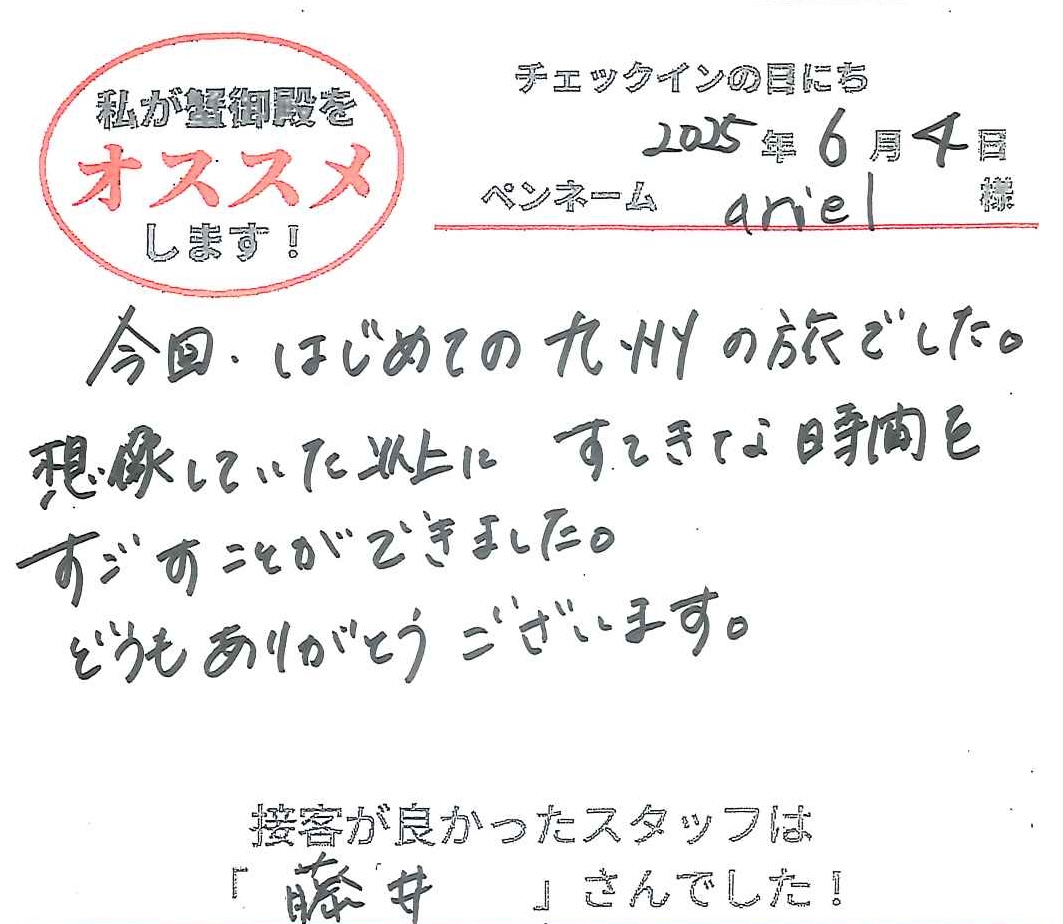 私が蟹御殿を
オススメ
します！
チェックインの日にち
2025年6月4日
ペンネーム ariel 様
今回、はじめての九州の旅でした。
想像していた以上に すてきな時間を
すごすことができました。
どうもありがとうございます。
接客が良かったスタッフは
「藤井」さんでした！